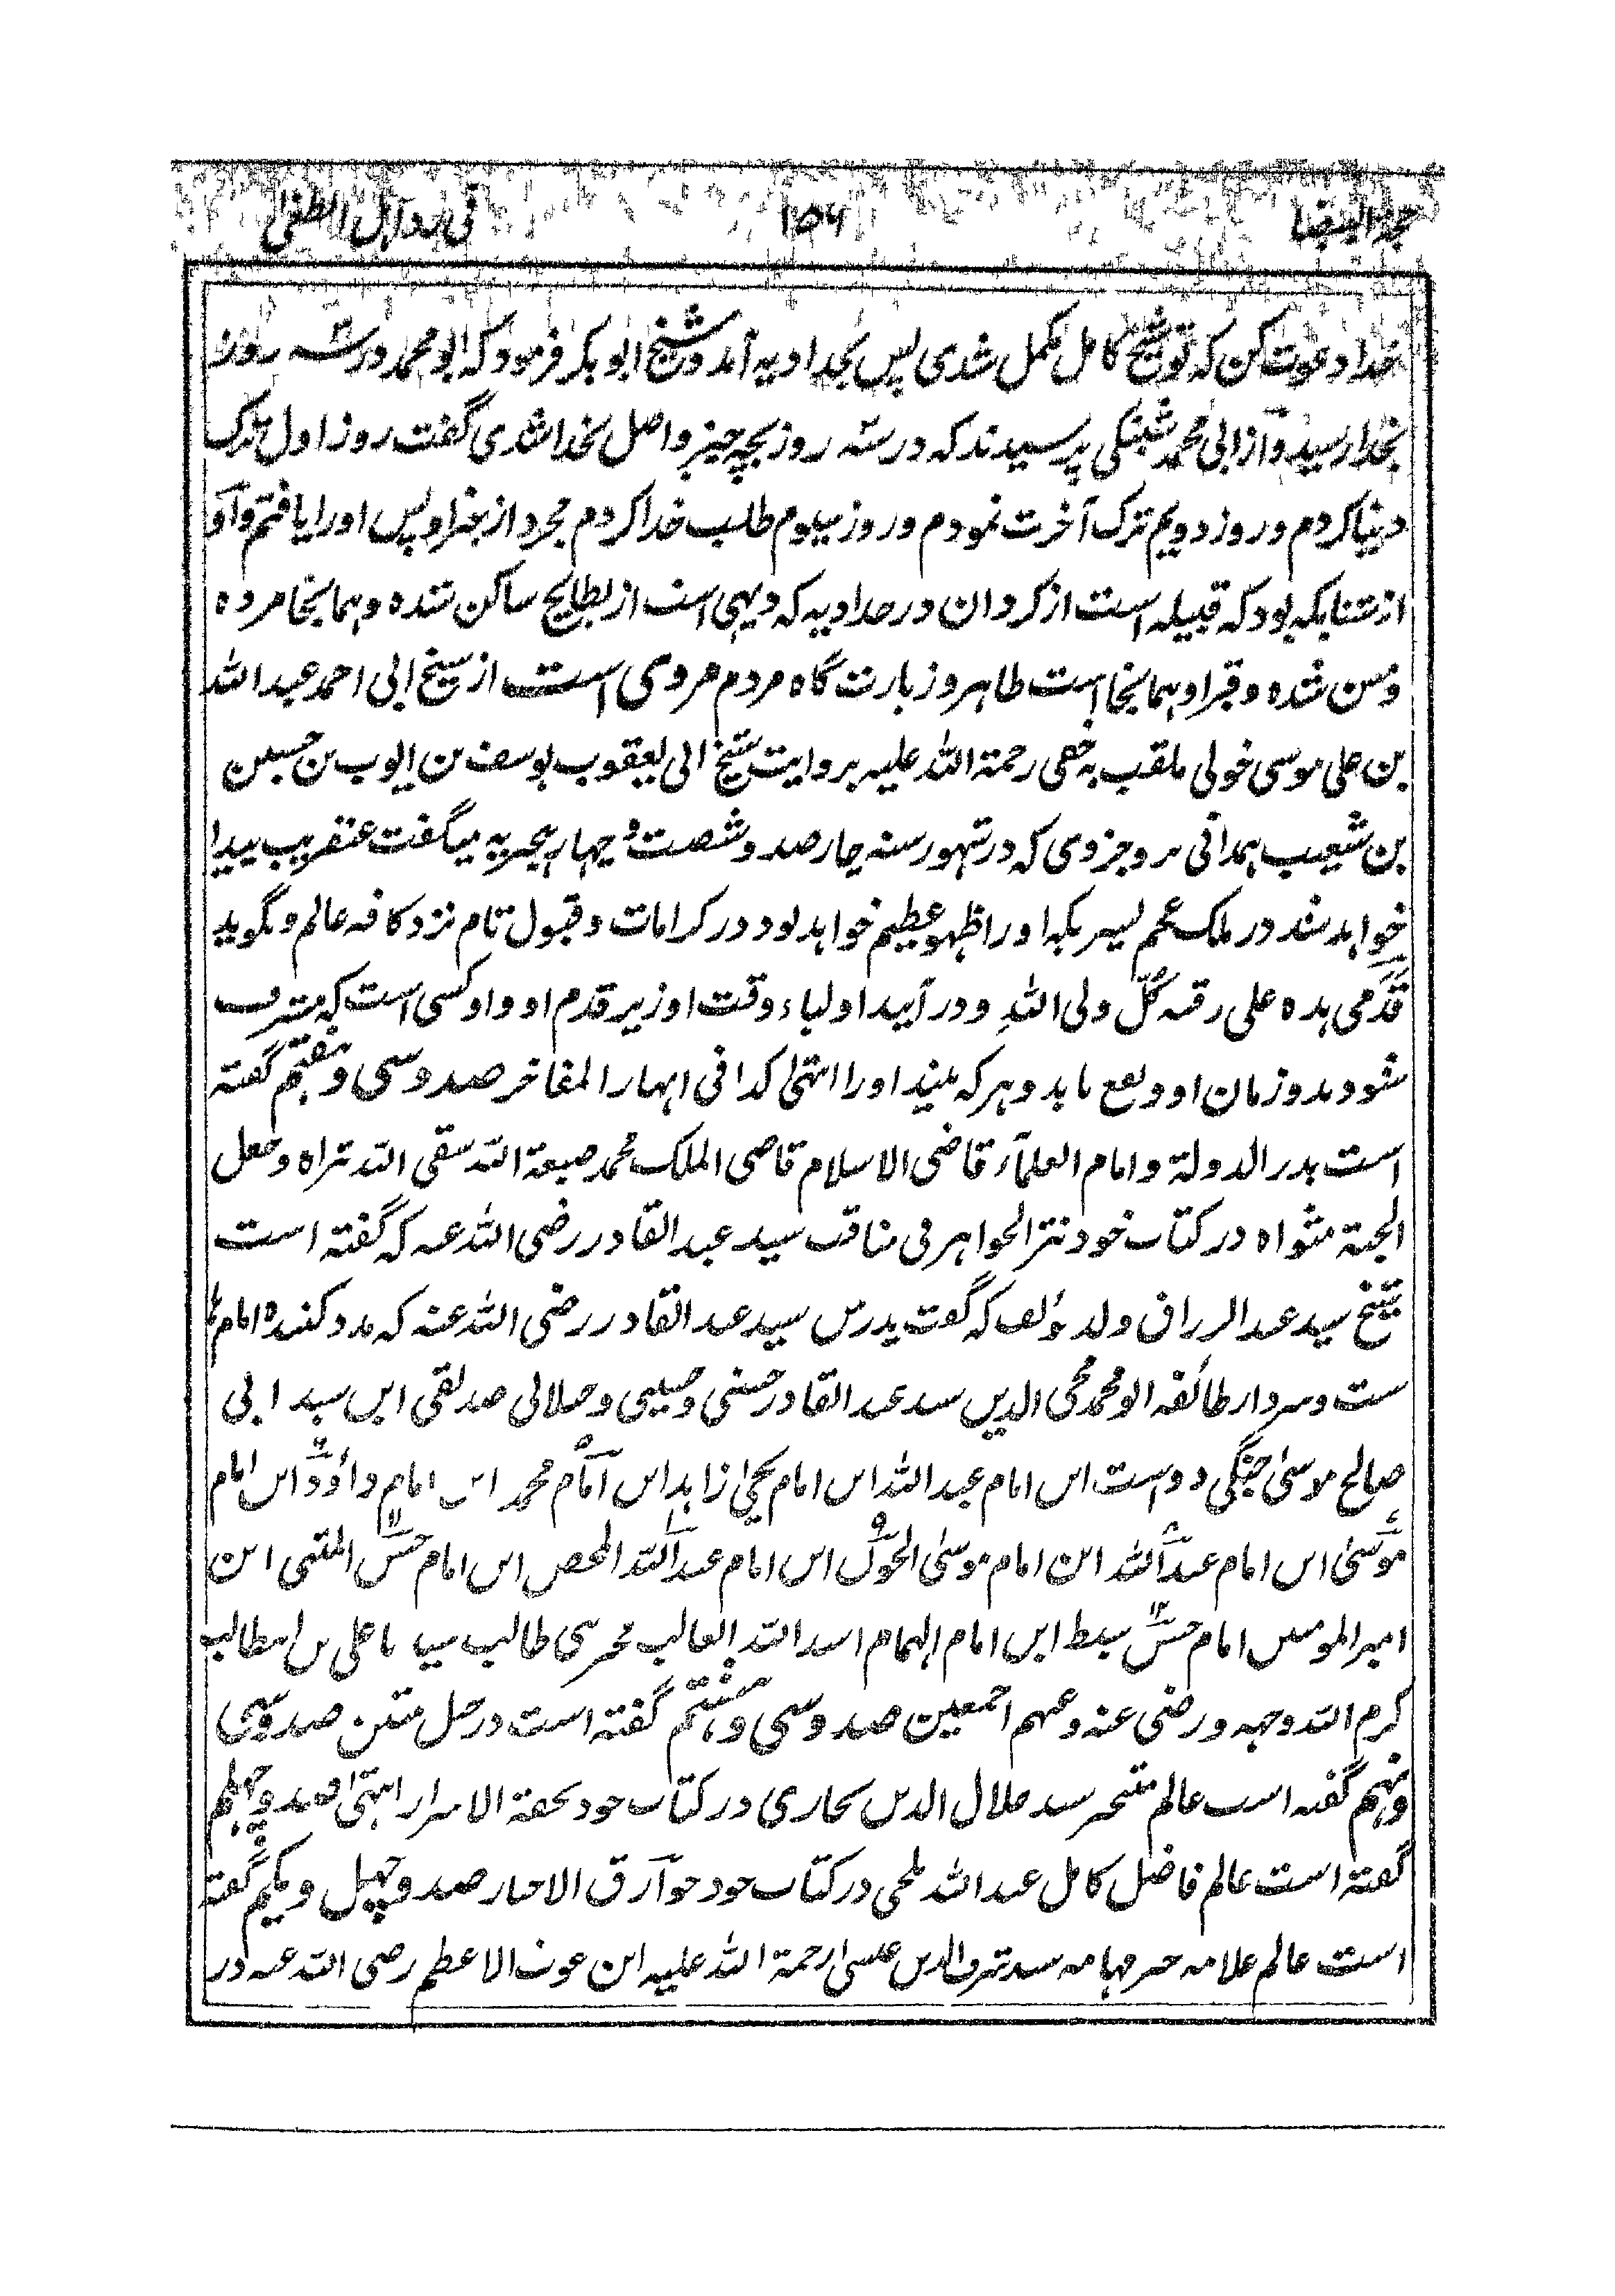 ۱۵۶
خدا دعوت کن که تو شیخ کامل مکمل شدی پس بحدادیه آمد و شیخ ابوبکر فرمود که ابومحمد در سه روز
بخدا رسید و از ابی محمد شنبکی پرسیدند که در سه روز بچه چیز واصل بخدا شدی گفت روز اول ترک
دنیا کردم و روز دویم ترک آخرت نمودم و روز سیوم طلب خدا کردم مجرد از غیر او پس او را یافتم و او
از شنابکه بود که قبیله است از کردان در حدادیه که دیهی است از بطایح ساکن شده و همانجا مرده
دفن شده و قبر او همانجا است ظاهر و زیارت گاه مردم مروی است از شیخ ابی احمد عبد الله
بن علی موسی خولی ملقب به خفی رحمة الله علیه بروایت شیخ ابی یعقوب یوسف بن ایوب بن حسین
بن شعیب همدانی بروجزدی که در شهور سنه چارصد و شصت و چهار هجریه میگفت عنقریب پیدا
خواهد شد در ملک عجم پسریکه او را ظهور عظیم خواهد بود در کرامات و قبول تام نزد کافه عالم و بگوید
قدمی هذه علی رقبه کل ولی الله و در آیند اولیاء وقت او زیر قدم او و او کسی است که مشرف
شود بدو زمان او و نفع یابد و هر که بیند او را انتهی کذا فی انهار المفاخر صد و سی و هفتم گفته
است بدر الدولة و امام العلماء قاضی الاسلام قاضی الملک محمد صبغة الله سقی الله ثراه و جعل
الجنة مثواه در کتاب خود نثر الجواهر فی مناقب سید عبد القادر رضی الله عنه که گفته است
شیخ سید عبد الرزاق ولد مؤلف که گفت پدرش سید عبد القادر رضی الله عنه که مدد کننده امام
ست و سردار طائفه ابومحمد محی الدین سید عبد القادر حسنی و حسینی و جیلانی صدیقی ابن سید ابی
صالح موسی جنگی دوست ابن امام عبد الله ابن امام یحیی زاهد ابن امام محمد ابن امام داؤد ابن امام
موسی ابن امام عبد الله ابن امام موسی الجون ابن امام عبد الله المحض ابن امام حسن المثنی ابن
امیر المومنین امام حسن سبط ابن امام الهمام اسد الله الغالب طالب علی بن ابیطالب
کرم الله وجهه و رضی عنه و عنهم اجمعین صد و سی و هشتم گفته است در حل متن صد و سی
و نهم گفته است عالم متبحر سید جلال الدین بخاری در کتاب خود تحفة الاسرار انتهی صد و چهلم
گفته است عالم فاضل کامل عبد الله بلخی در کتاب خود خوارق الاحبار صد و چهل و یکم گفته
است عالم علامه سید شرف الدین عیسی رحمة الله علیه ابن غوث الاعظم رضی الله عنه در